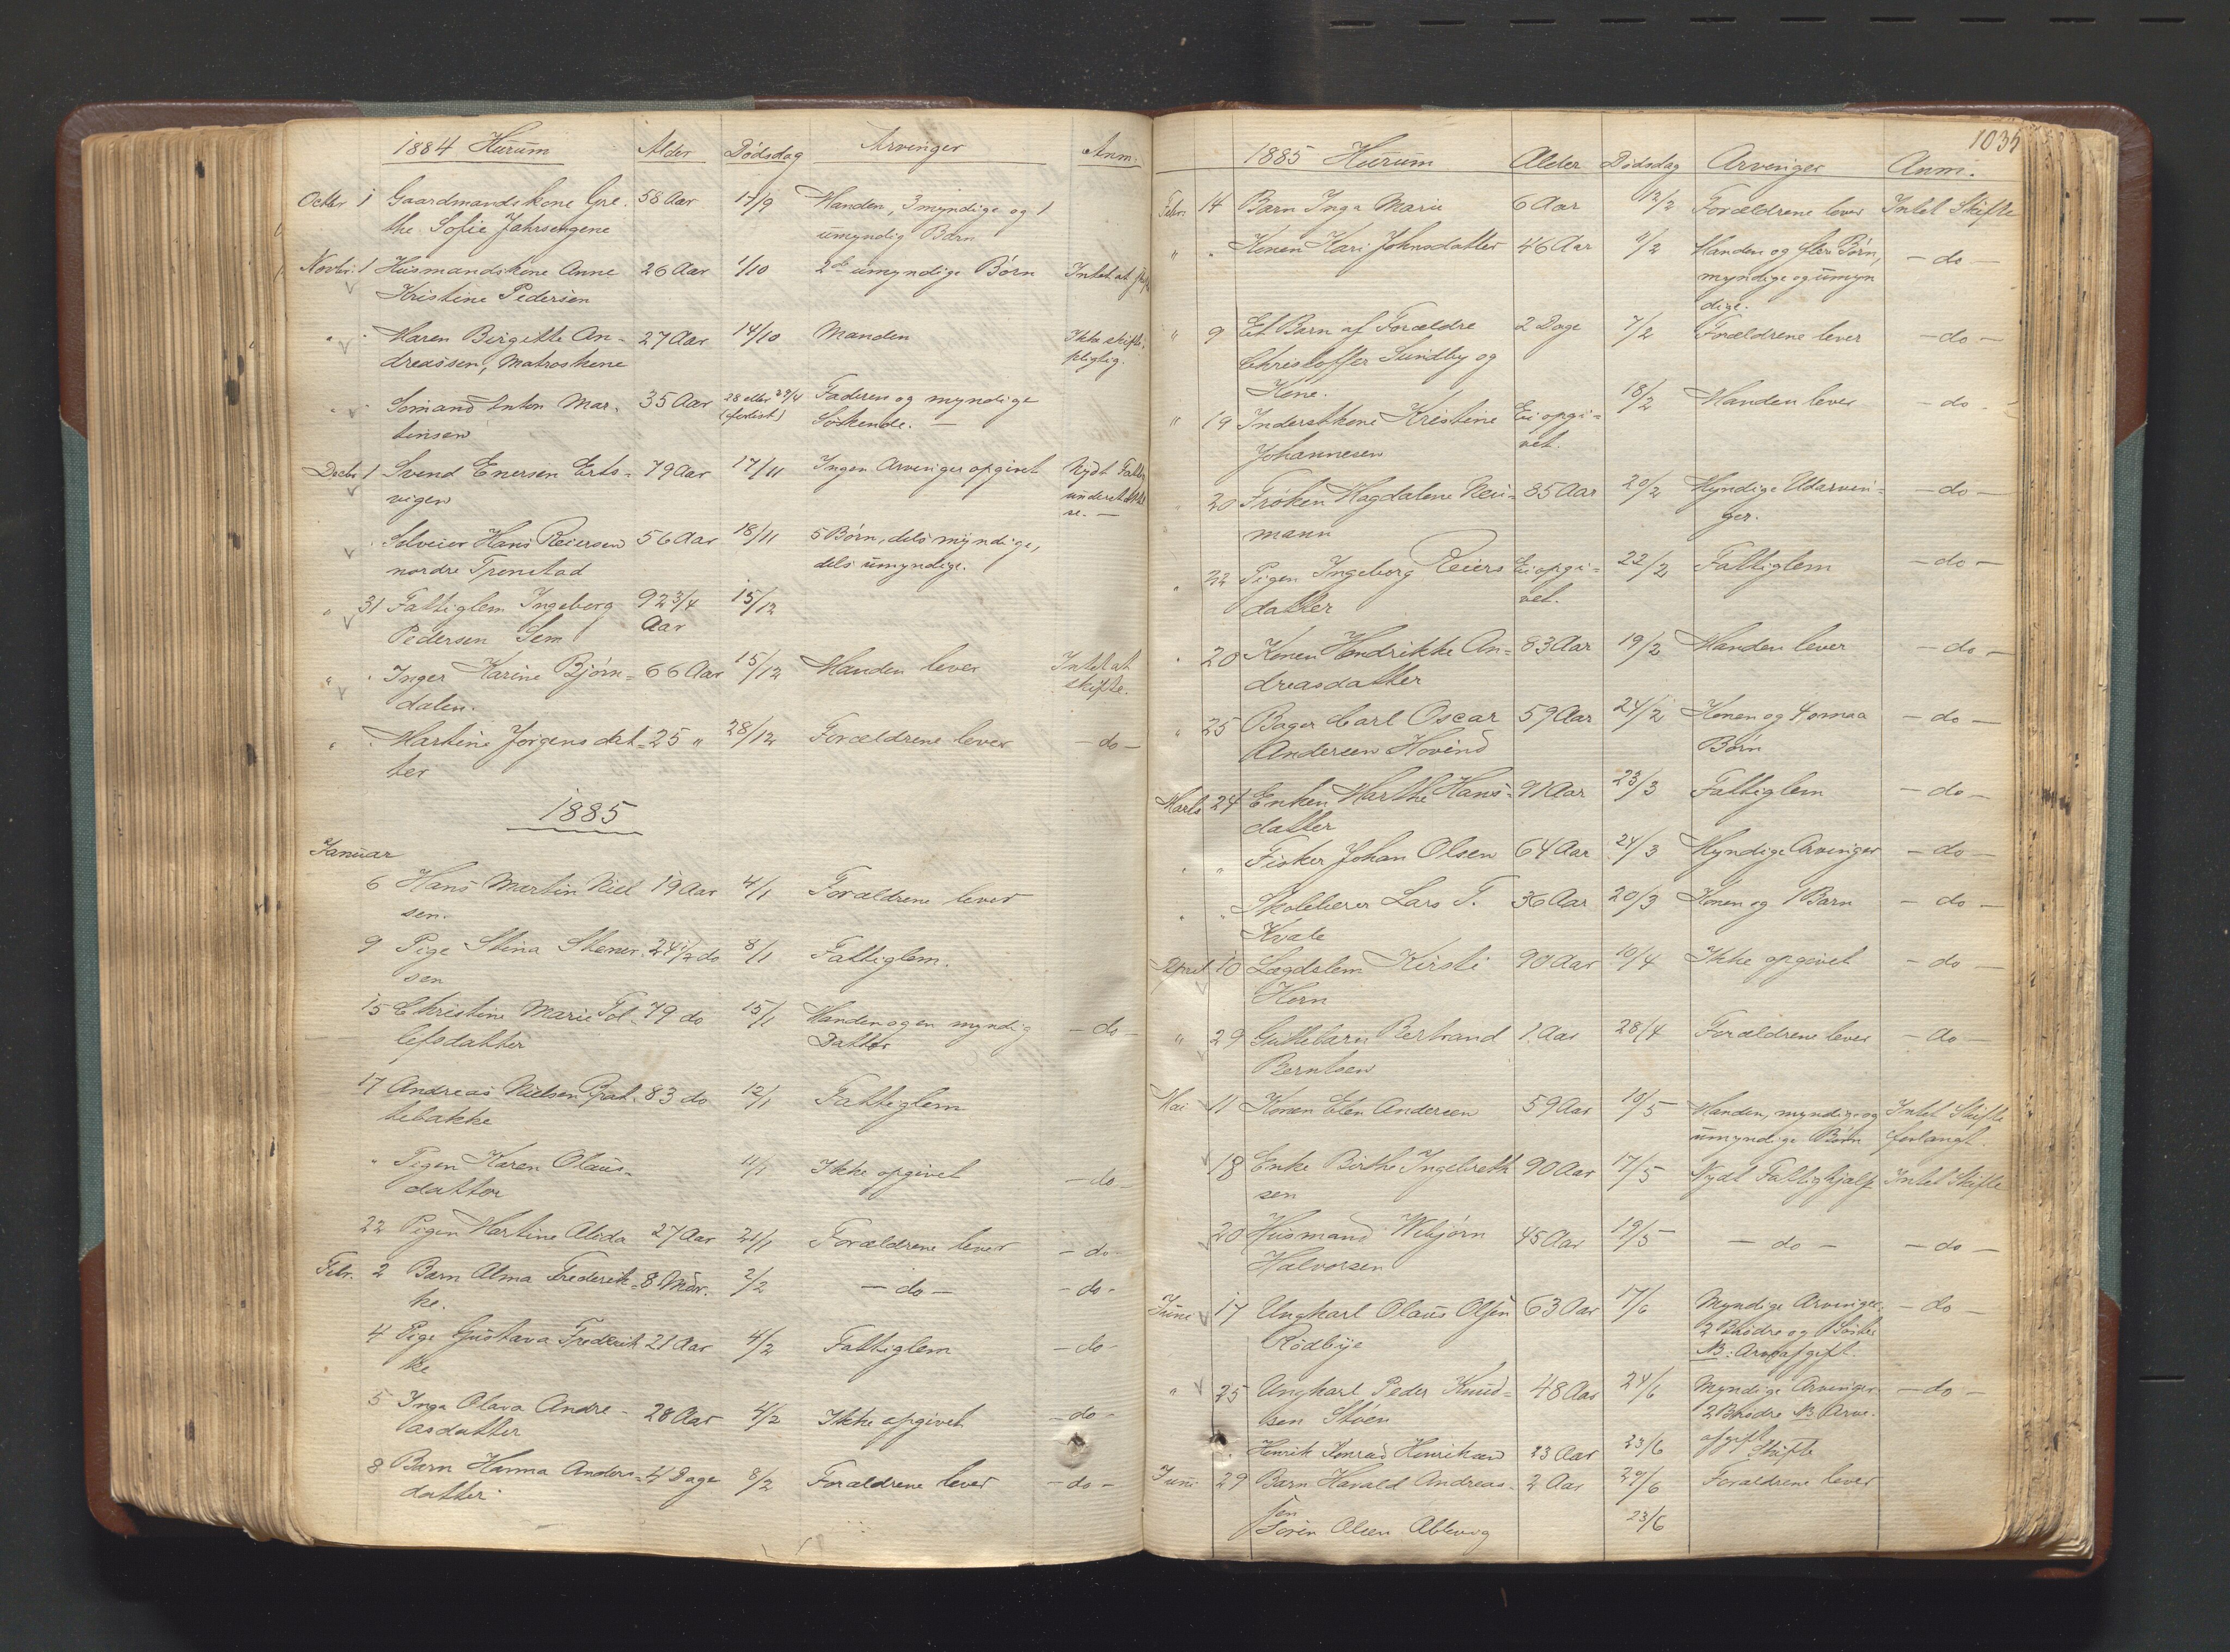 1884 Hurum Alder Dødsdag Arvinger Anm.
Octbr 1 Gaardmandskone Gre- 58 Aar 17/9 Manden, 3 myndige og 1
the Sofie Jahrsengene umyndig Barn
Novbr. 1 Husmandskone Anne 26 Aar 1/10 2de umyndige Børn Intet at
Kristine Pedersen
" Maren Birgitte An- 27 Aar 14/10 Manden Ikke skifte-
dreassen, Matroskone pligtig.
" Sømand Anton Mar- 35 Aar 28 eller 29/4 Faderen og myndige
tinsen (forlist) Søskende. —
Decbr 1 Svend Enersen Erts- 79 Aar 17/11 Ingen Arvinger opgivet Nydt Fattig
vigen understøttel
se. —
Selveier Hans Reiersen 56 Aar 18/11 5 Børn, dels myndige,
nordre Tronstad dels umyndige.
" 31 Fattiglem Ingeborg 92 3/4 15/12
Pedersen Sem Aar
" Inger Karine Bjørn- 66 Aar 15/12 Manden lever Intet at
dalen. skifte.
" Martine Jørgensdat- 25 " 28/12 Forældrene lever — do —
ter
1885
Januar
6 Hans Martin Niel 19 Aar 4/1 Forældrene lever
sen.
9 Pige Stina Stener- 24 1/2 do 8/1 Fattiglem.
sen
15 Christine Marie Tol- 79 do 15/1 Manden og en myndig — do —
lefsdatter Datter
17 Andreas Nielsen Brat- 83 do 12/1 Fattiglem
tebakke
" Pigen Karen Olaus- 11/1 Ikke opgivet — do —
datter
22 Pigen Martine Alida 27 Aar 21/1 Forældrene lever — do —
Febr. 2 Barn Alma Frederik- 8 Mdr. 2/2 — do — — do -
ke.
4 Pige Gustava Frederik 21 Aar 4/2 Fattiglem — do -
ke
5 Inga Olava Andre- 28 Aar 4/2 Ikke opgivet — do -
asdatter
8 Barn Hanna Anders- 4 Dage 8/2 Forældrene lever — do —
datter
1035
1885 Hurum Alder Dødsdag Arvinger Anm.
Febr. 14 Barn Inga Marie 6 Aar 12/2 Forældrene lever Intet Skifte
" " Konen Kari Johnsdatter 46 Aar 11/2 Manden og flere Børn, — do —
myndige og umyn
dige.
" 9 Et Barn af Forældre 2 Dage 7/2 Forældrene lever — do —
Christoffer Sundby og
Kone.
" 19 Inderstkone Kristine Ei opgi- 18/2 Manden lever — do -
Johannesen vet.
" 20 Frøken Magdalene Neu- 85 Aar 20/2 Myndige Udarvin- — do —
mann ger.
" 22 Pigen Ingeborg Reiers Ei opgi- 22/2 Fattiglem — do —
datter vet.
" 20 Konen Hendrikke An- 83 Aar 19/2 Manden lever — do —
dreasdatter
" 25 Bager Carl Oscar 59 Aar 24/2 Konen og 4 smaa — do —
Andersen Hovind Børn
Marts 24 Enken Marthe Hans- 91 Aar 23/3 Fattiglem — do —
datter
" " Fisker Johan Olsen 64 Aar 24/3 Myndige Arvinger — do —
" " Skolelærer Lars T. 36 Aar 20/3 Konen og 1 Barn — do —
Kvale
April 10 Lægdslem Kirsti 90 Aar 10/4 Ikke opgivet — do —
Horn
" 29 Guttebarn Bertrand 1 Aar 28/4 Forældrene lever — do —
Berntsen
Mai 11 Konen Elen Andersen 59 Aar 10/5 Manden, myndige og Intet Skifte
umyndige Børn forlangt.
18 Enke Birthe Ingebreth 90 Aar 17/5 Nydt Fattighjælp Intet Skifte
sen
20 Husmand Webjørn 45 Aar 19/5 — do — — do —
Halvorsen
Juni 17 Ungkarl Olaus Olsen 63 Aar 17/6 Myndige Arvinger: — do —
Rødbye 2 Brødre og 1 Søster
NB: Arveafgift.
" 25 Ungkarl Peder Knud- 48 Aar 24/6 Myndige Arvinger — do —
sen Støen 2 Brødre NB Arve-
afgift
Henrik Konrad Henriksen 23 Aar 23/6 Skifte
Juni 29 Barn Harald Andreas- 2 Aar 29/6 Forældrene lever
sen
Søren Olsen Ablevig 23/6